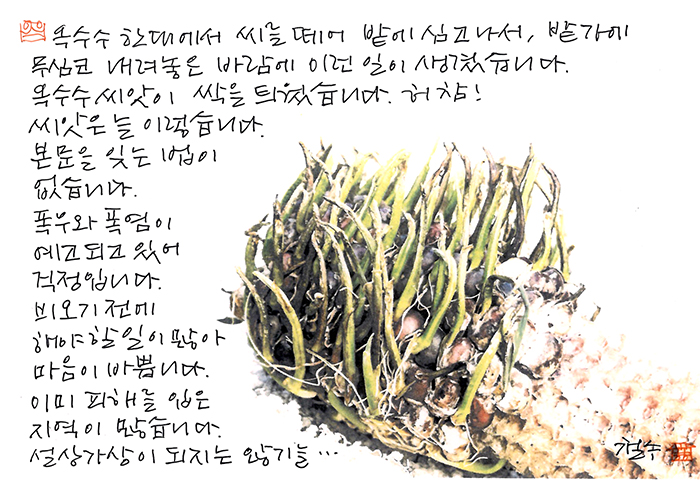 옥수수 한대에서 씨를 떼어 밭에 심고나서, 밭가에
무심코 내려놓은 바람에 이런 일이 생겼습니다.
옥수수 씨앗이 싹을 틔웠습니다. 허참!
씨앗은 늘 이렇습니다.
본분을 잊는 법이
없습니다.
폭우와 폭염이
예고되고 있어
걱정입니다.
비오기 전에
해야할 일이 많아
마음이 바쁩니다.
이미 피해를 입은
지역이 많습니다.
설상가상이 되지는 않기를…
철수